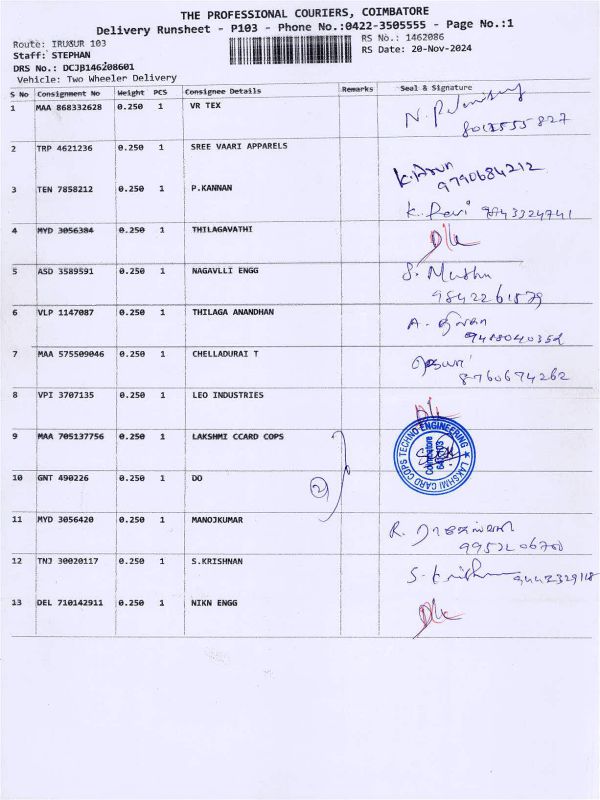 THE PROFESSIONAL COURIERS, COIMBATORE
Delivery Runsheet - P103 - Phone No.:0422-3505555 - Page No.:1
Route: IRUGUR 103
RS No.: 1462086
Staff: STEPHAN
RS Date: 20-Nov-2024
DRS No.: DCJB146208601
Vehicle: Two Wheeler Delivery
S No Consignment No Weight PCS Consignee Details Remarks Seal & Signature
1 MAA 868332628 0.250 1 VR TEX
8012555827
2 TRP 4621236 0.250 1 SREE VAARI APPARELS K. Arun
9790684212
3 TEN 7858212 0.250 1 P.KANNAN
K. Ravi 9843324741
4 MYD 3056384 0.250 1 THILAGAVATHI D/L
5 ASD 3589591 0.250 1 NAGAVLLI ENGG S. Muthu
9842261579
6 VLP 1147087 0.250 1 THILAGA ANANDHAN A. திலகா
9488040352
7 MAA 575509046 0.250 1 CHELLADURAI T
8760674262
8 VPI 3707135 0.250 1 LEO INDUSTRIES D/L
9 MAA 705137756 0.250 1 LAKSHMI CCARD COPS
LAKSHMI CARD COPS TECHNO ENGINEERING
Coimbatore
10 GNT 490226 0.250 1 DO 2
11 MYD 3056420 0.250 1 MANOJKUMAR R. ராஜேஸ்வரி
12 TNJ 30020117 0.250 1 S.KRISHNAN S. Krishnan 9442329118
13 DEL 710142911 0.250 1 NIKN ENGG D/L